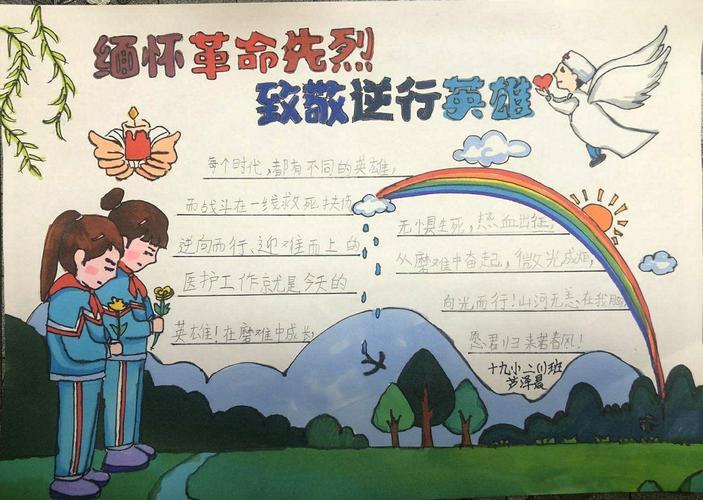 缅怀革命先烈
致敬逆行英雄
每个时代,都有不同的英雄,
而战斗在一线救死扶伤
逆向而行、迎难而上的
医护工作就是今天的
英雄!在磨难中成长,
无惧生死,热血出征,
从磨难中奋起,微光成炬,
向光而行!山河无恙在我胸,
愿君归来若春风!
十九小二(1)班
芦泽晨